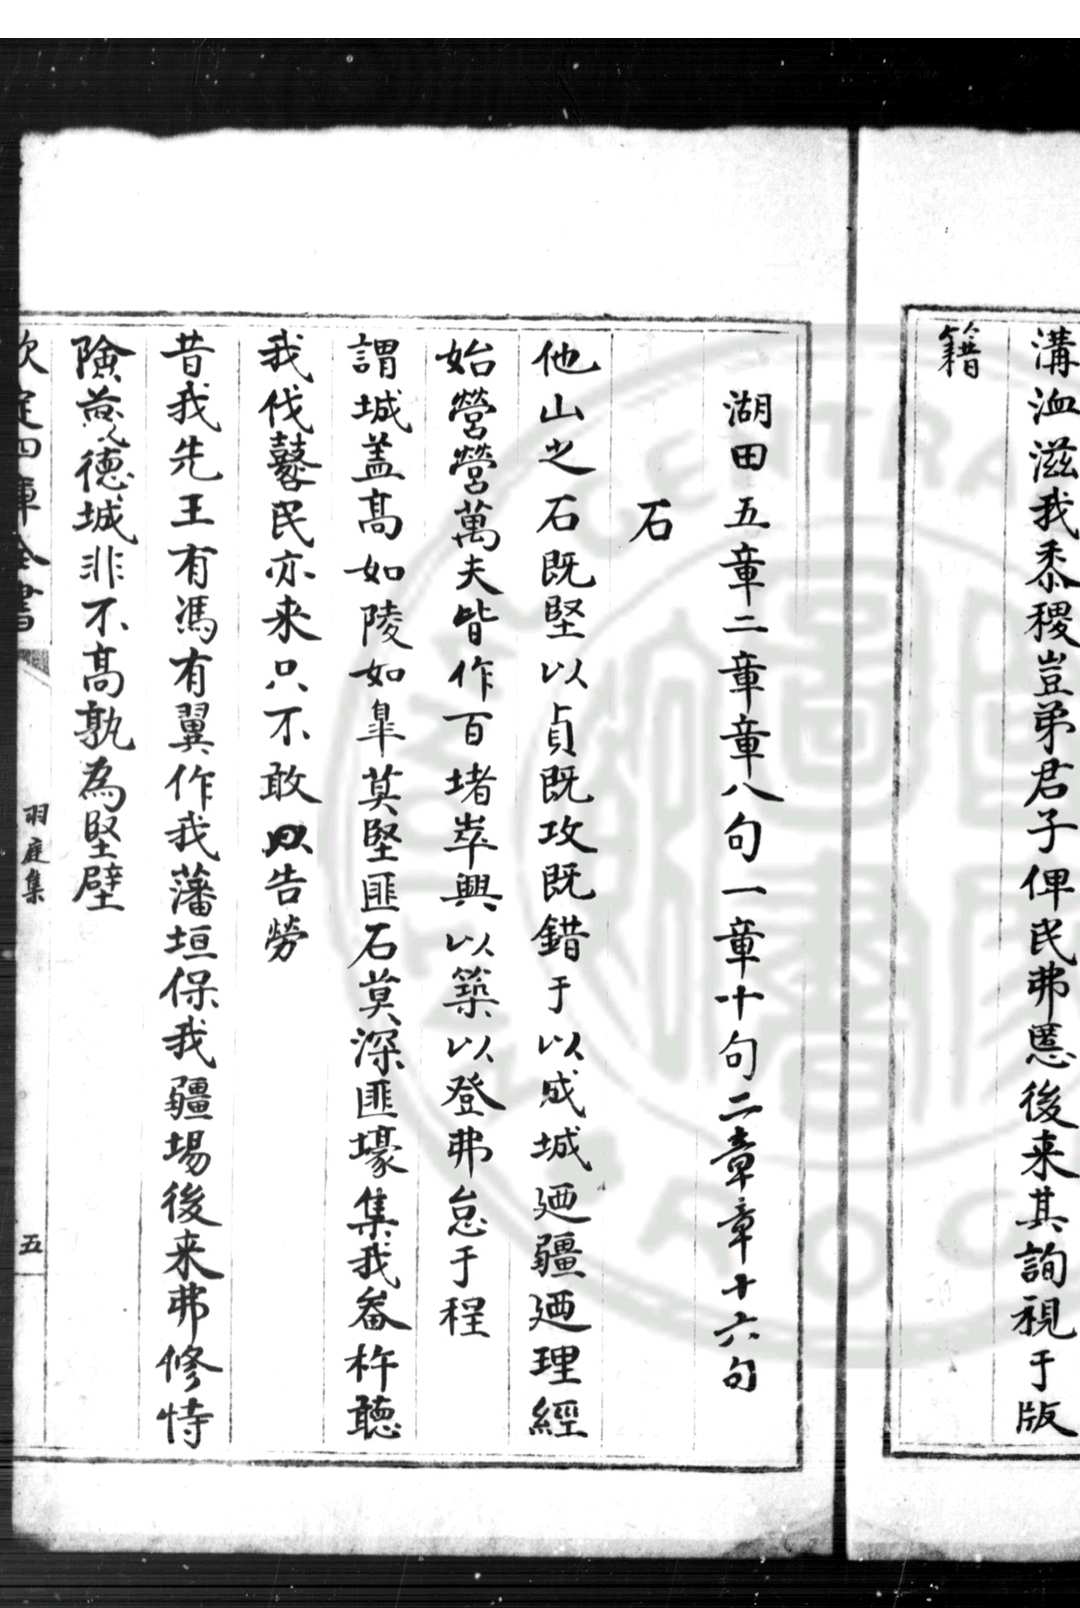 溝洫滋我黍稷豈弟君子俾民弗慝後来其詢視于版
籍
湖田五章二章章八句一章十句二章章十六句
石
他山之石既堅以貞既攻既錯于以成城廼疆廼理經
始營營萬夫皆作百堵崒興以築以登弗怠于程
謂城盖髙如陵如臯莫堅匪石莫深匪壕集我畚杵聽
我伐鼛民亦来只不敢以告勞
昔我先王有馮有翼作我藩垣保我疆埸後来弗修恃
險蔑德城非不髙孰為堅壁
欽定四庫全書
羽庭集
五